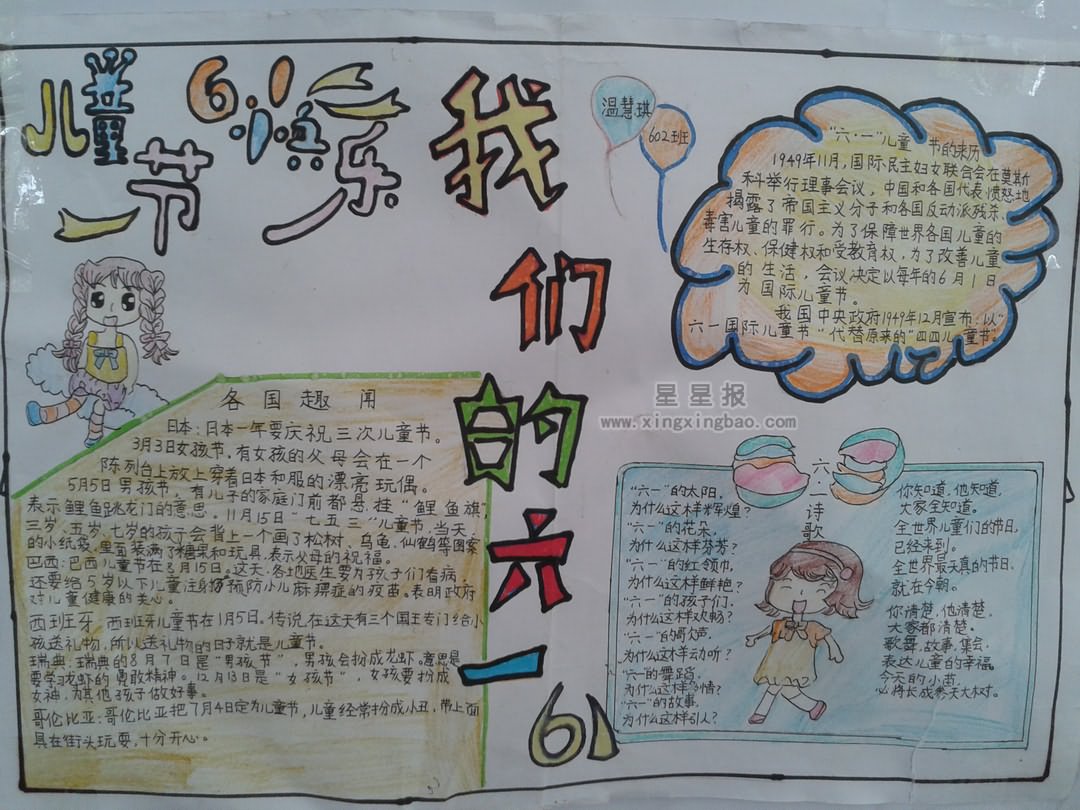 儿童
节
6.1快乐
我们的六一
温慧琪
602班
"六·一"儿童节的来历
1949年11月,国际民主妇女联合会在莫斯
科举行理事会议,中国和各国代表愤怒地
揭露了帝国主义分子和各国反动派残杀、
毒害儿童的罪行。为了保障世界各国儿童的
生存权、保健权和受教育权,为了改善儿童
的生活,会议决定以每年的6月1日
为国际儿童节。
我国中央政府1949年12月宣布:以"
六一国际儿童节"代替原来的"四四儿童节"
星星报
www.xingxingbao.com
各国趣闻
日本:日本一年要庆祝三次儿童节。
3月3日女孩节,有女孩的父母会在一个
陈列台上放上穿着日本和服的漂亮玩偶。
5月5日男孩节,有儿子的家庭门前都悬挂"鲤鱼旗",
表示鲤鱼跳龙门的意思。11月15日"七五三"儿童节,当天,
三岁、五岁、七岁的孩子会背上一个画了松树、乌龟、仙鹤等图案
的小纸袋,里面装满了糖果和玩具,表示父母的祝福。
巴西:巴西儿童节在8月15日。这天,各地医生要为孩子们看病,
还要给5岁以下儿童注射预防小儿麻痹症的疫苗。表明政府
对儿童健康的关心。
西班牙:西班牙儿童节在1月5日。传说,在这天有三个国王专门给小
孩送礼物,所以送礼物的日子就是儿童节。
瑞典:瑞典的8月7日是"男孩节",男孩会扮成龙虾。意思是
要学习龙虾的勇敢精神。12月13日是"女孩节",女孩要扮成
女神,为其他孩子做好事。
哥伦比亚:哥伦比亚把7月4日定为儿童节,儿童经常扮成小丑,带上面
具在街头玩耍,十分开心。
61
六一诗歌
"六一"的太阳,
为什么这样辉煌?
"六一"的花朵,
为什么这样芬芳?
"六一"的红领巾,
为什么这样鲜艳?
"六一"的孩子们,
为什么这样欢畅?
"六一"的歌声,
为什么这样动听?
"六一"的舞蹈,
为什么这样多情?
"六一"的故事,
为什么这样引人?
你知道,他知道,
大家全知道。
全世界儿童们的节日,
已经来到。
全世界最天真的节日,
就在今朝。
你清楚,他清楚,
大家都清楚。
歌舞,故事,集会,
表达儿童的幸福。
今天的小苗,
必将长成参天大树。